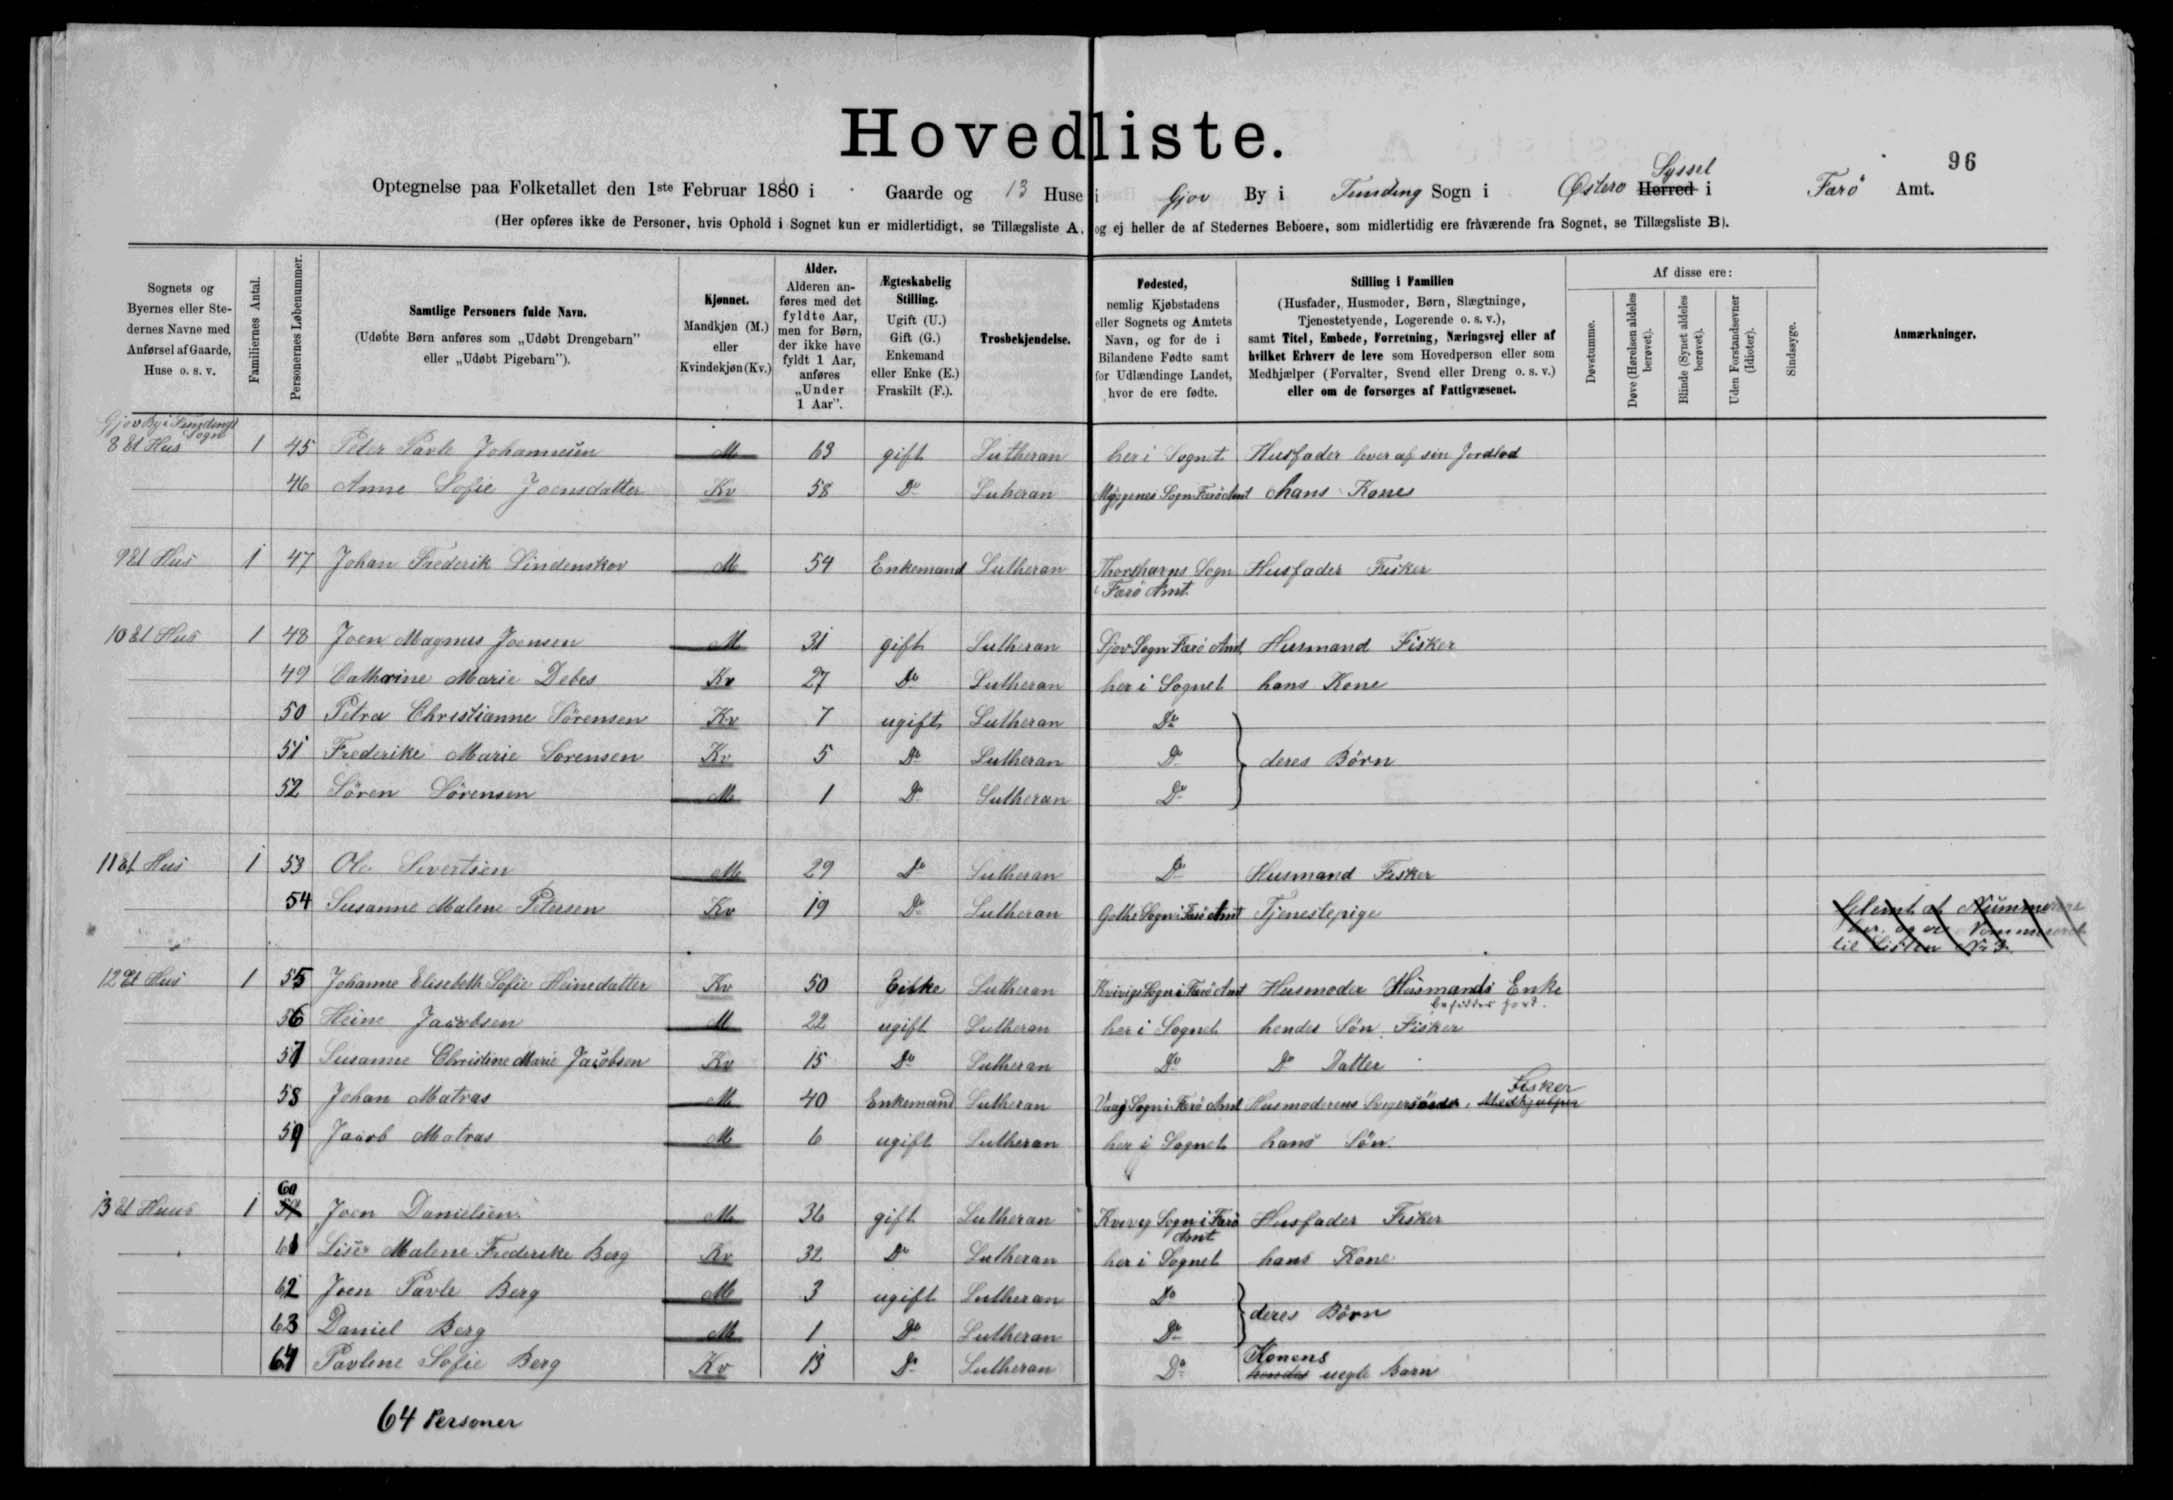 96
Hovedliste.
Optegnelse paa Folketallet den 1ste Februar 1880 i Gaarde og 13 Huse i Gjov By i Funding Sogn i Østerø Herred Syssel i Færø Amt.
(Her opføres ikke de Personer, hvis Ophold i Sognet kun er midlertidigt, se Tillægsliste A, og ej heller de af Stedernes Beboere, som midlertidig ere fraværende fra Sognet, se Tillægsliste B).
Sognets og Byernes eller Stedernes Navne med Anførsel af Gaarde, Huse o. s. v.
Familiernes Antal.
Personernes Løbenummer.
Samtlige Personers fulde Navn. (Udøbte Børn anføres som „Udøbt Drengebarn" eller „Udøbt Pigebarn").
Kjønnet. Mandkjøn (M.) eller Kvindekjøn (Kv.)
Alder. Alderen anføres med det fyldte Aar, men for Børn, der ikke have fyldt 1 Aar, anføres „Under 1 Aar".
Ægteskabelig Stilling. Ugift (U.) Gift (G.) Enkemand eller Enke (E.) Fraskilt (F.).
Trosbekjendelse.
Fødested, nemlig Kjøbstadens eller Sognets og Amtets Navn, og for de i Bilandene Fødte samt for Udlændinge Landet, hvor de ere fødte.
Stilling i Familien (Husfader, Husmoder, Børn, Slægtninge, Tjenestetyende, Logerende o. s. v.), samt Titel, Embede, Forretning, Næringsvej eller af hvilket Erhverv de leve som Hovedperson eller som Medhjælper (Forvalter, Svend eller Dreng o. s. v.) eller om de forsørges af Fattigvæsenet.
Af disse ere:
Døvstumme.
Døve (Hørelsen aldeles berøvet).
Blinde (Synet aldeles berøvet).
Uden Forstandsevner (Idioter).
Sindssyge.
Anmærkninger.
Gjov By i Fundings Sogn
8 Et Hus 1 45 Peter Pavle Johannesen M 63 gift Lutheran her i Sognet Husfader lever af sin Jordlod
46 Anne Sofie Joensdatter Kv 58 Do Luheran Myggenes Sogn Færö Amt hans Kones
9 Et Hus 1 47 Johan Frederik Lindenskov M 54 Enkemand Lutheran Thorshavns Sogn i Færö Amt. Husfader Fisker
10 Et Hus 1 48 Joen Magnus Joensen M 31 gift Lutheran Sjov Sogn Færö Amt Husmand Fisker
49 Cathrine Marie Debes Kv 27 Do Lutheran her i Sognet hans Kone
50 Petra Christianne Sörensen Kv 7 ugift Lutheran Do
51 Frederike Marie Sorensen Kv 5 Do Lutheran Do deres Börn
52 Sören Sörensen M 1 Do Lutheran Do
11 Et Hus 1 53 Ole Sivertsen M 29 Do Lutheran Do Husmand Fisker
54 Susanne Malene Petersen Kv 19 Do Lutheran Gothe Sogn i Færö Amt Tjenestepige
Glemt at Nummerere
her og er Nommereret
til Listen No 3.
12 Et Hus 1 55 Johanne Elisebeth Sofie Heinedatter Kv 50 Enke Lutheran Kvivigs Sogn i Færö Amt Husmoder Husmands Enke
besidder Jord.
56 Heine Jacobsen M 22 ugift Lutheran her i Sognet hendes Sön Fisker
57 Susanne Christine Marie Jacobsen Kv 15 Do Lutheran Do Do Datter
58 Johan Matras M 40 Enkemand Lutheran Vaag Sogn i Færö Amt Husmoderens Svigersönn, Medhjælper Fisker
59 Jacob Matras M 6 ugift Lutheran her i Sognet hans Sön.
13 Et Huus 1 59 60 Joen Danielsen M 36 gift Lutheran Kvivig Sogn i Færö Amt Husfader Fisker
61 Lise Malene Frederike Berg Kv 32 Do Lutheran her i Sognet hans Kone
62 Joen Pavle Berg M 3 ugift Lutheran Do
deres Börn
63 Daniel Berg M 1 Do Lutheran Do
64 Pavline Sofie Berg Kv 13 Do Lutheran Do hendes Konens uegte Barn
64 Personer